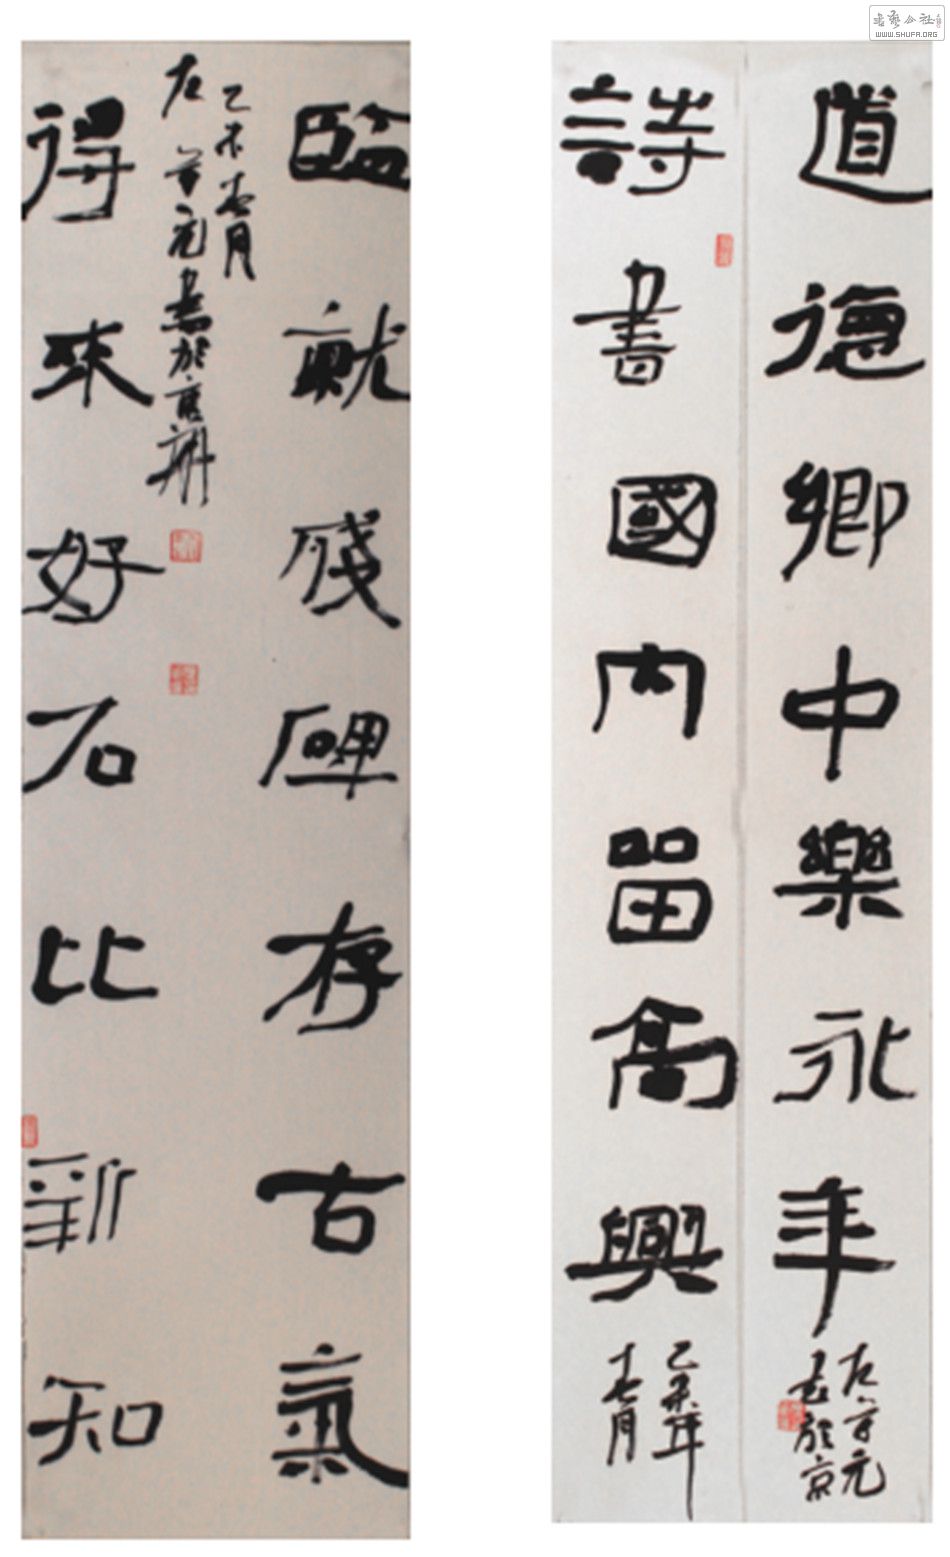 书艺公社
WWW.SHUFA.ORG
道德卿中樂永年
左 元
書於京
詩書國內留高興
乙未年
月
臨就殘碑存古氣
乙未 月
左 元書於京
得來好石比新知